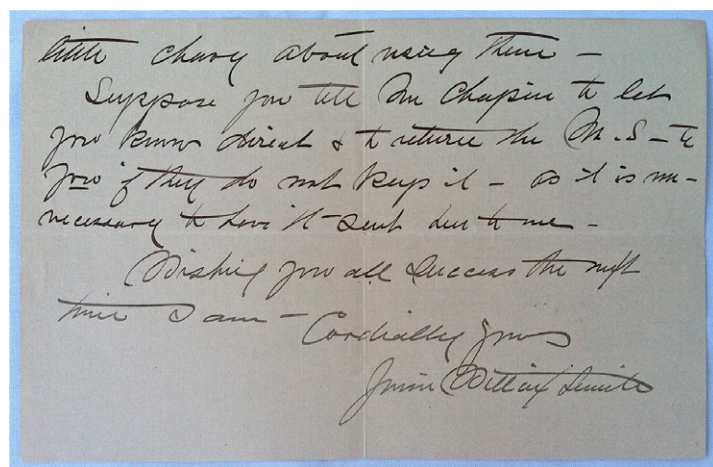 little chary about using them –
Suppose you tell Mr Chapin to let
you know direct & to return the M.S – to
you if they do not keep it – as it is un-
necessary to have it sent here to me –
Wishing you all success the next
time I am –
Cordially yours
Jessie Willcox Smith